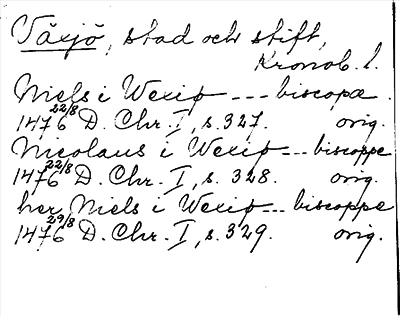 Växjö, stad och stift,
Kronob. l.
Niels i Wexiø --- biscopæ.
1476 22/8 D. Chr. I, s. 327. orig.
Nicolaus i Wexiø --- biscoppe
1476 22/8 D. Chr. I, s. 328. orig.
her Niels i Wexiø --- biscoppæ
1476 29/8 D. Chr. I, s. 329. orig.